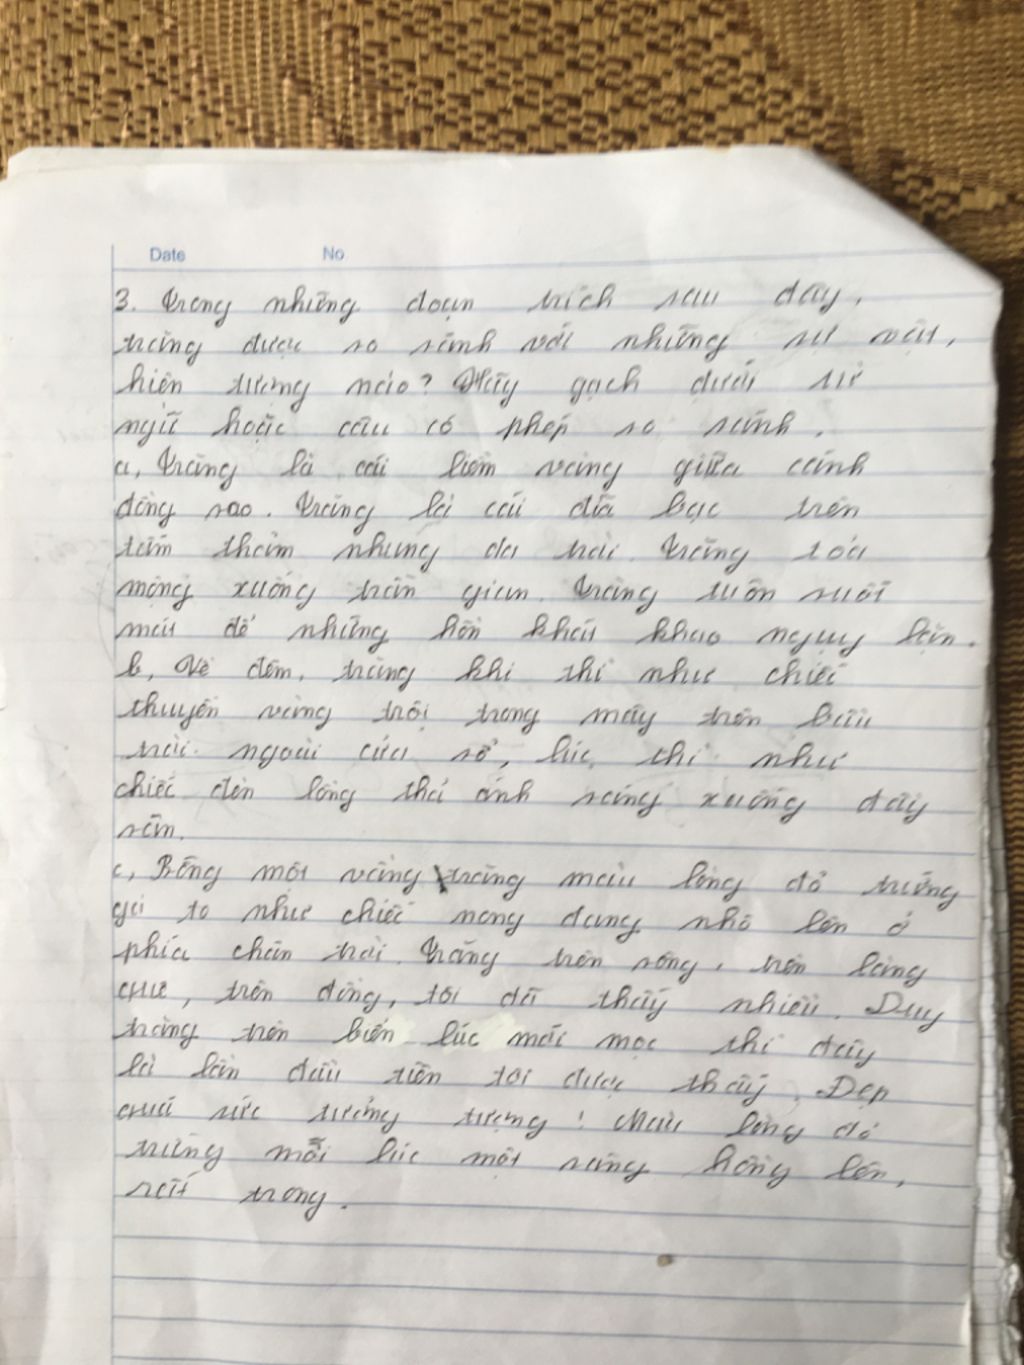 Date No
3. Trong những đoạn trích sau đây,
trăng được so sánh với những sự vật,
hiện tượng nào? Hãy gạch dưới từ
ngữ hoặc câu có phép so sánh.
a, Trăng là cái liềm vàng giữa cánh
đồng sao. Trăng là cái đĩa bạc trên
tấm thảm nhung da trời. Trăng toả
mộng xuống trần gian. Trăng tuôn suối
mát để những hồn khát khao ngụy lặn.
b, Về đêm, trăng khi thì như chiếc
thuyền vàng trôi trong mây trên bầu
trời ngoài cửa sổ, lúc thì như
chiếc đèn lồng thả ánh sáng xuống đầy
sân.
c, Bỗng một vầng trăng màu lòng đỏ trứng
gà to như chiếc nong đang nhô lên ở
phía chân trời. Trăng trên sông, trên làng
quê, trên đồng, tôi đã thấy nhiều. Duy
trăng trên biển lúc mới mọc thì đây
là lần đầu tiên tôi được thấy. Đẹp
quá sức tưởng tượng! Màu lòng đỏ
trứng mỗi lúc một sáng hồng lên,
rất trong.